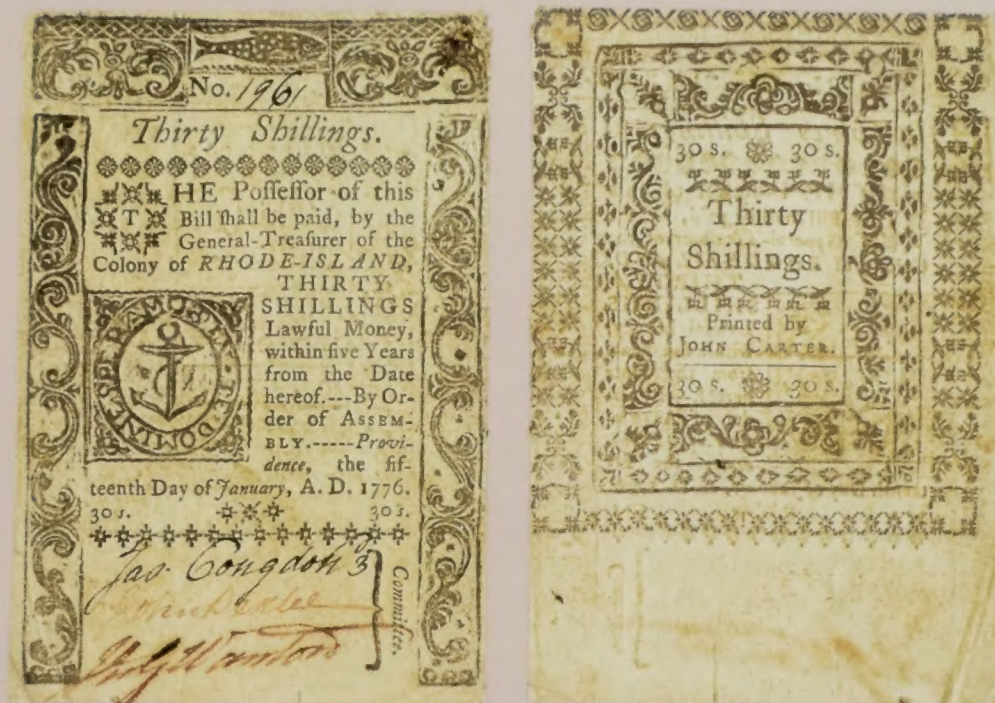 No. 1961
Thirty Shillings.
THE Poſſeſſor of this
Bill ſhall be paid, by the
General-Treaſurer of the
Colony of RHODE-ISLAND,
THIRTY
SHILLINGS
Lawful Money,
within five Years
from the Date
hereof.---By Or-
der of ASSEM-
BLY.-----Provi-
dence, the fif-
teenth Day of January, A. D. 1776.
IN TE DOMINE SPERAMUS
30 s. 30 s.
Jas. Congdon 3d
Committee.
30 s. 30 s.
Thirty
Shillings.
Printed by
JOHN CARTER.
30 s. 30 s.